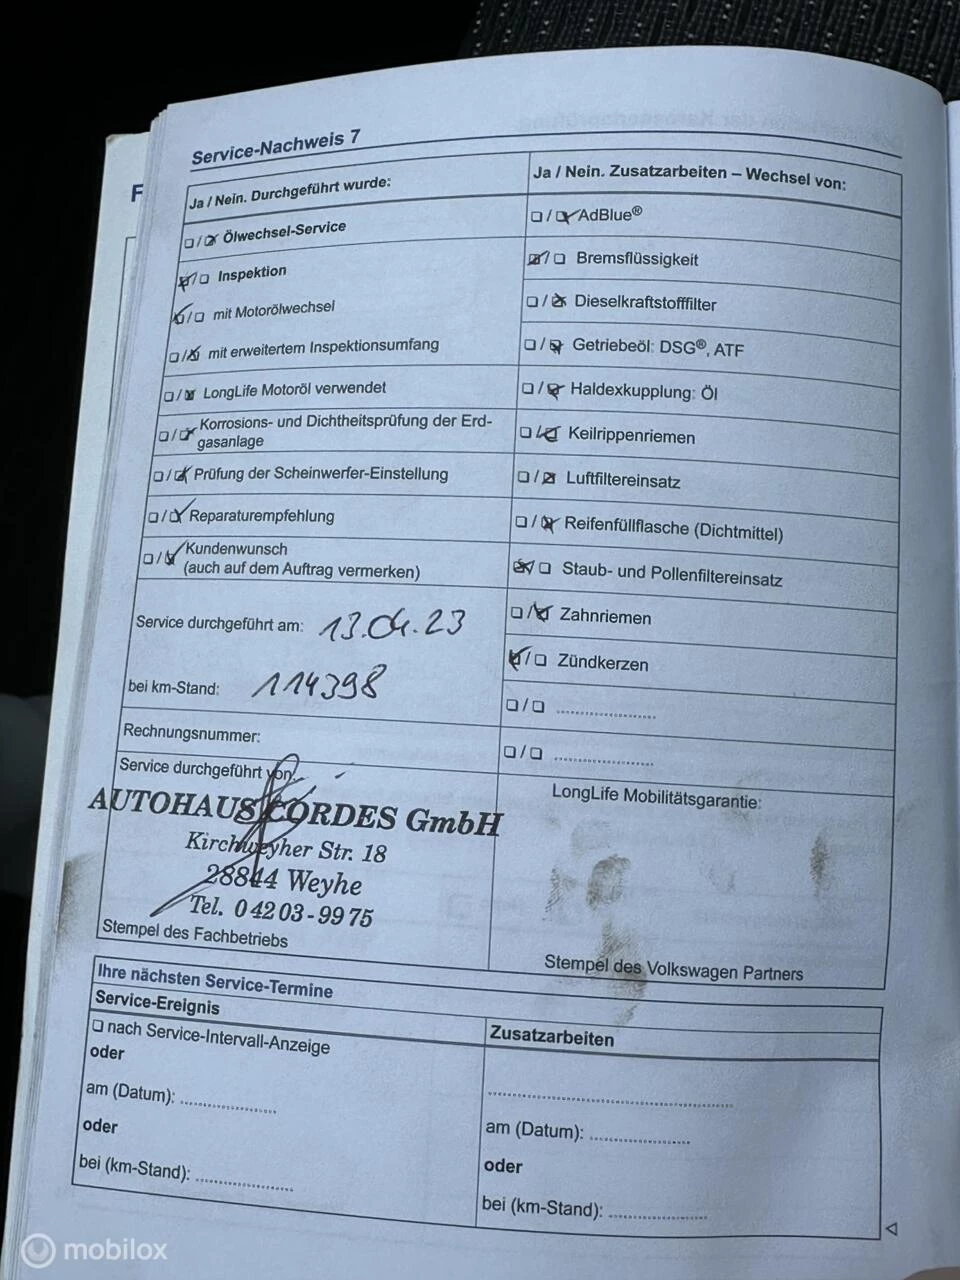 Service-Nachweis 7
Ja / Nein. Durchgeführt wurde:
Ölwechsel-Service
Inspektion
mit Motorölwechsel
mit erweitertem Inspektionsumfang
LongLife Motoröl verwendet
Korrosions- und Dichtheitsprüfung der Erd-
gasanlage
Prüfung der Scheinwerfer-Einstellung
Reparaturempfehlung
Kundenwunsch
(auch auf dem Auftrag vermerken)
Service durchgeführt am: 13.04.23
bei km-Stand: 114398
Rechnungsnummer:
Service durchgeführt von:
AUTOHAUS CORDES GmbH
Kirchweyher Str. 18
28844 Weyhe
Tel. 0 42 03 - 99 75
Stempel des Fachbetriebs
Ja / Nein. Zusatzarbeiten – Wechsel von:
AdBlue®
Bremsflüssigkeit
Dieselkraftstofffilter
Getriebeöl: DSG®, ATF
Haldexkupplung: Öl
Keilrippenriemen
Luftfiltereinsatz
Reifenfüllflasche (Dichtmittel)
Staub- und Pollenfiltereinsatz
Zahnriemen
Zündkerzen
LongLife Mobilitätsgarantie:
Stempel des Volkswagen Partners
Ihre nächsten Service-Termine
Service-Ereignis
nach Service-Intervall-Anzeige
oder
am (Datum):
oder
bei (km-Stand):
Zusatzarbeiten
am (Datum):
oder
bei (km-Stand):
F
mobilox